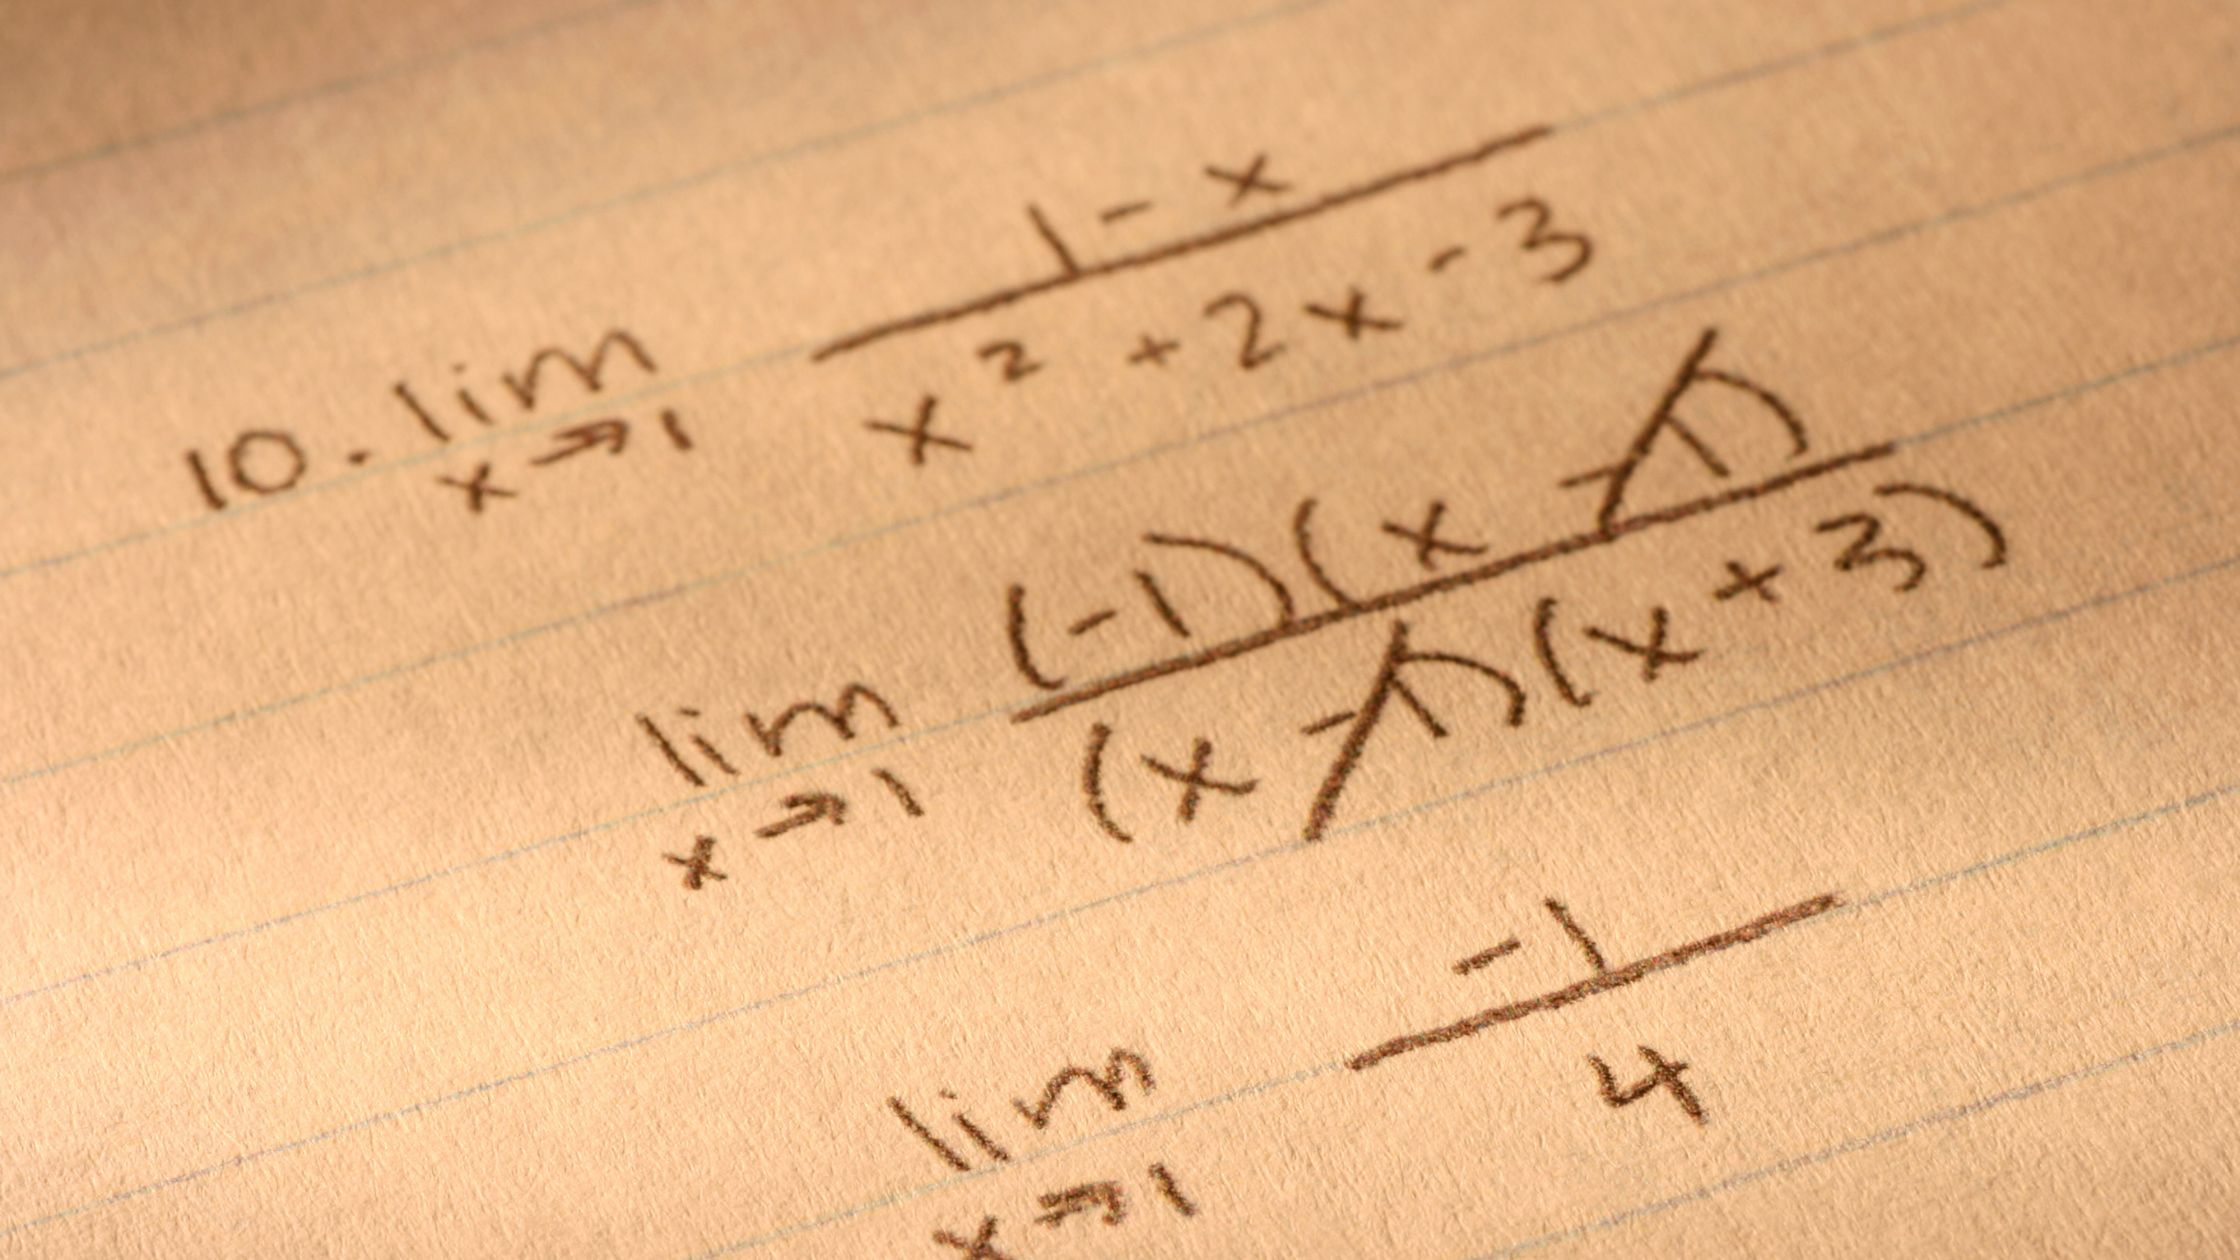 10. lim x→1 (1 - x) / (x² + 2x - 3)
lim x→1 (-1)(x - 1) / (x - 1)(x + 3)
lim x→1 -1 / 4